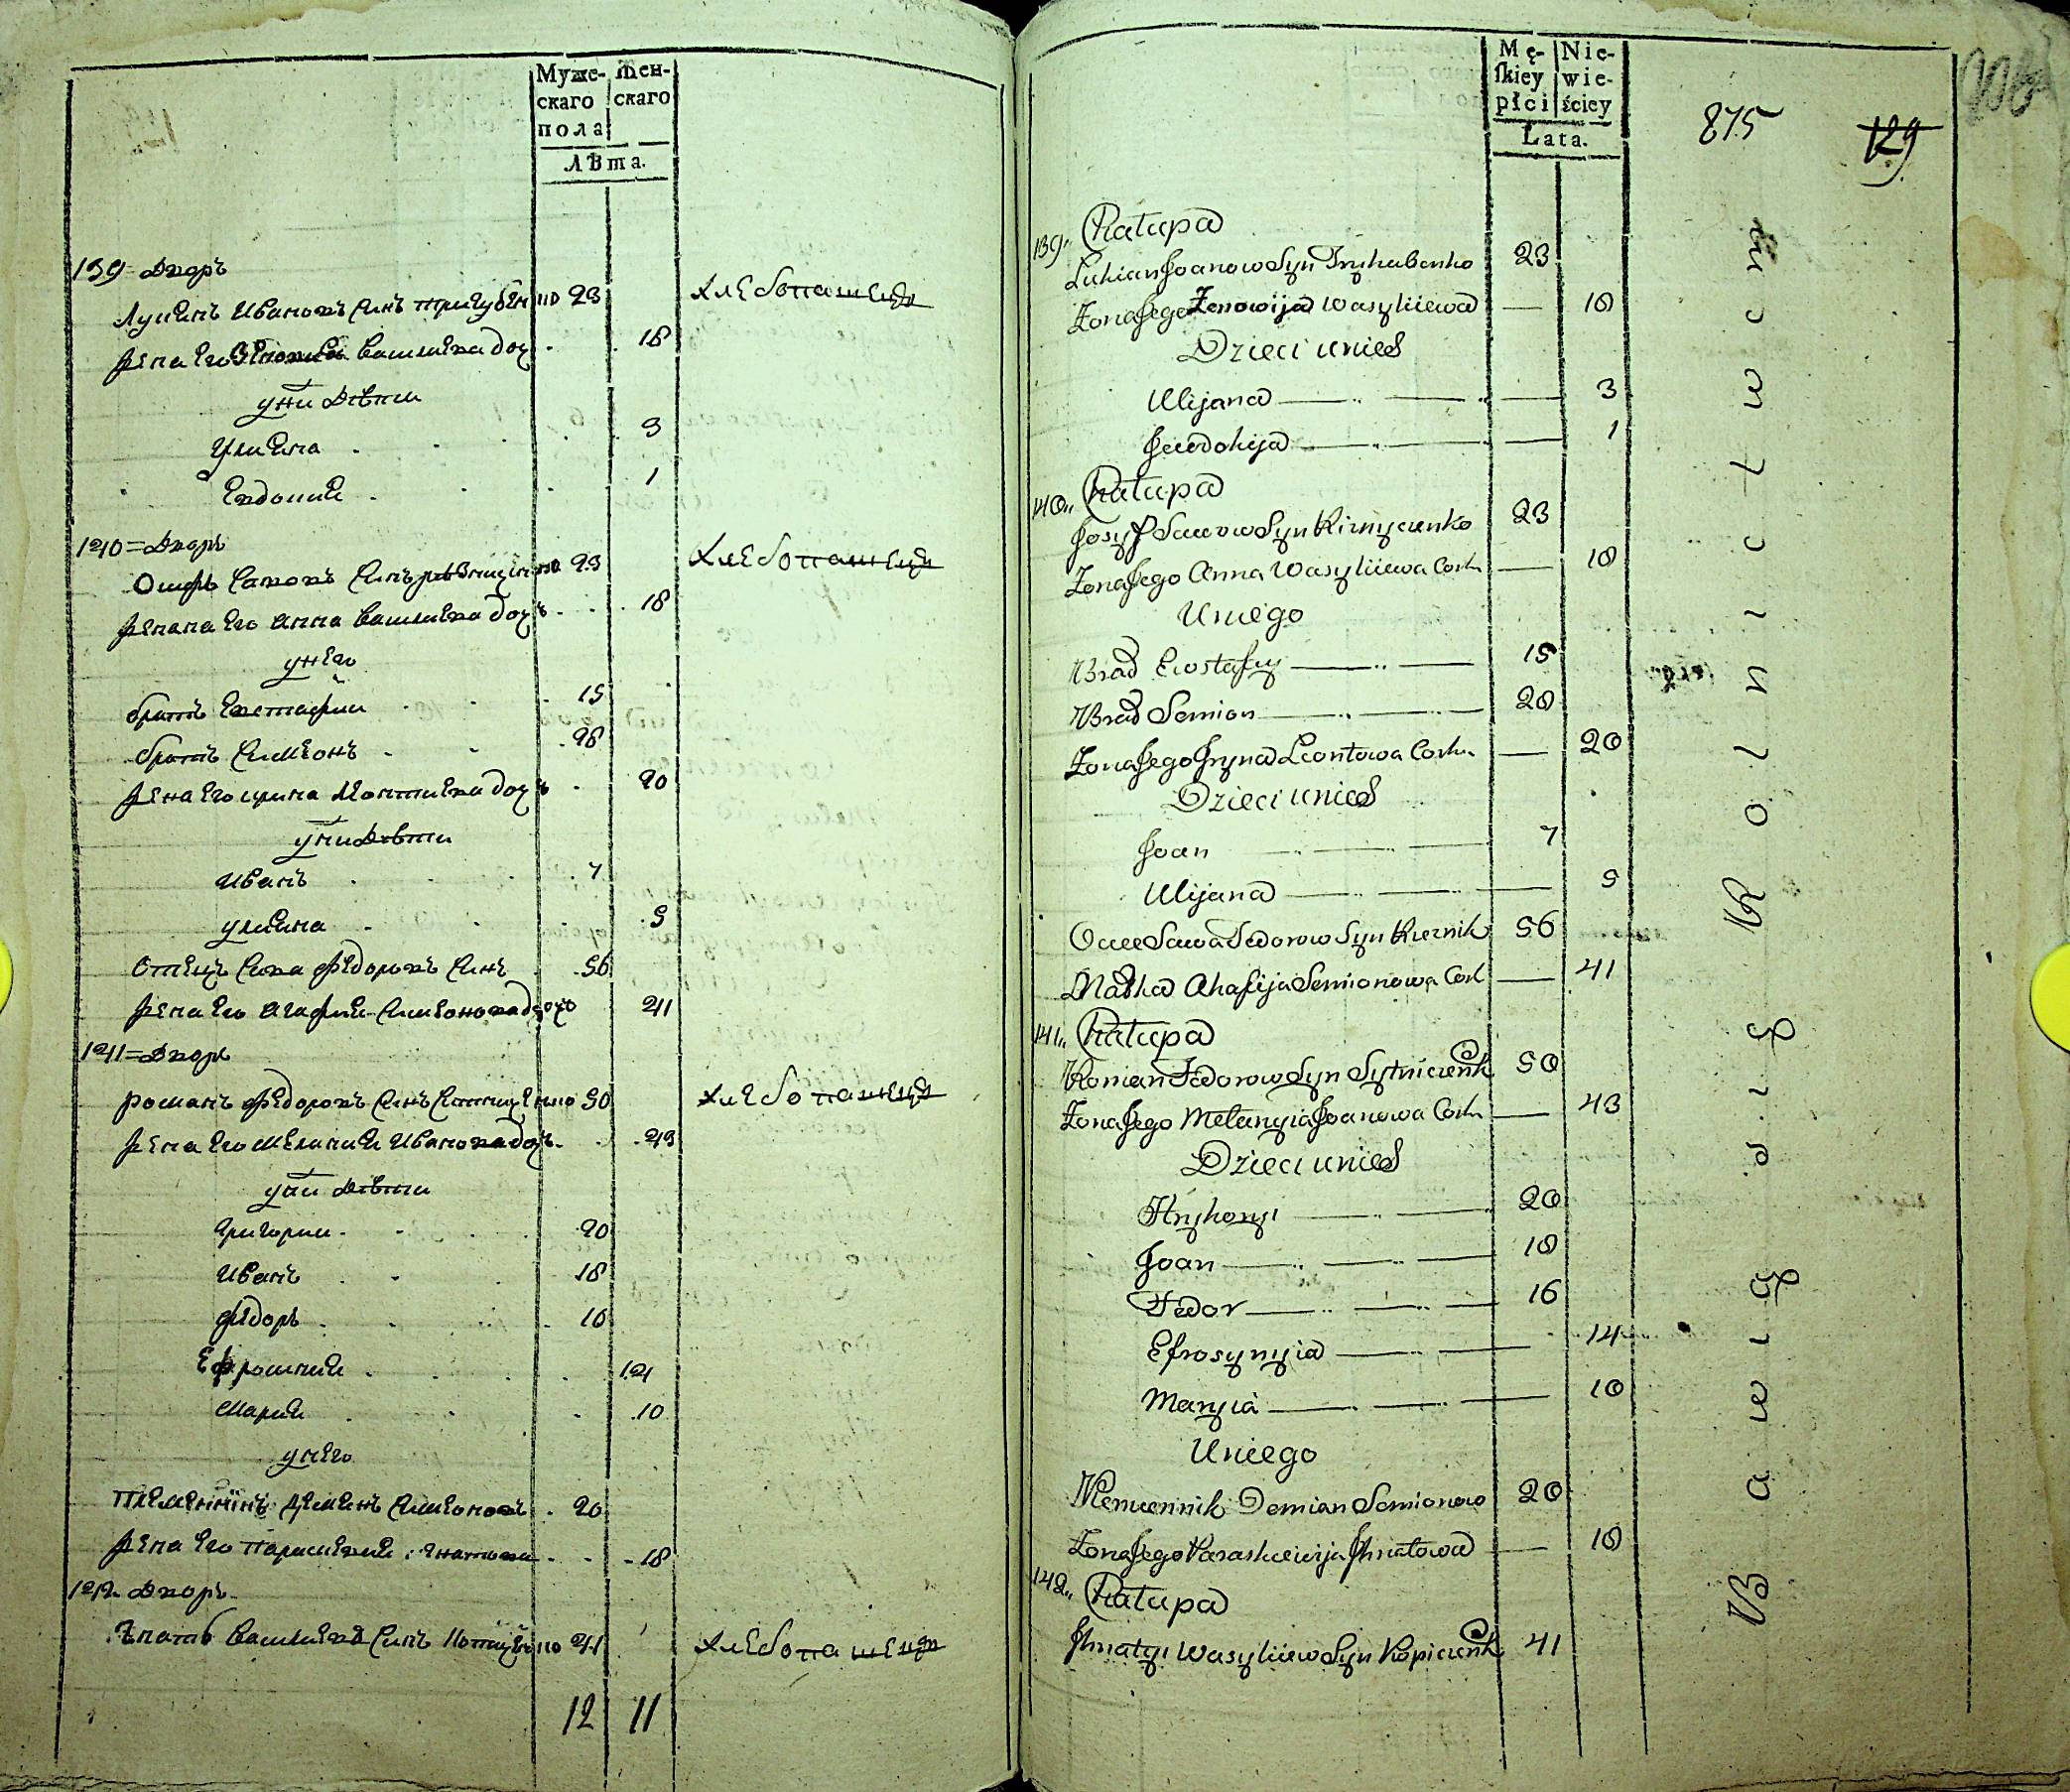 Муже-
скаго
пола
Жен-
скаго
Лѣта.
139 = Дворъ
Лукиянъ Ивановъ Синъ Тригубенко 23 Хлебопашецъ
Жена его Зѣновия Васильева доч 18
у ни дѣти
Улияна 3
Евдокия 1
140 = Дворъ
Осифъ Савовъ Синъ 23 Хлебопашецъ
Жена его Анна Васильева дочъ 18
у него
братъ Евстафии 15
братъ Симеонъ 28
Жена его Ирина Леонтиева дочъ 20
у ни дѣти
Иванъ 7
улияна 5
Отецъ Сава Федоровъ Синъ 56
Жена его Агафия Симеонова дочъ 41
141 = Дворъ
Романъ Федоровъ Синъ Ситниченко 50 Хлебопашецъ
Жена его Мелания Иванова дочъ 43
у ни дѣти
Григории 20
Иванъ 18
Федоръ 16
Ефросиния 14
Мария 10
у него
Племенникъ Демиянъ Симеоновъ 20
Жена его Парискевия Игнатова 18
142 Дворъ
Игнатъ Василиевъ Синъ 41 Хлебопашецъ
12 11
Mę-
skiey
płci
Nie-
wie-
ściey
Lata.
875
129
139. Chałupa
Lukian Joanow Syn Tryhubenko 23
Żona Jego Zenowija Wasyliiewa — 18
Dzieci u nich
Ulijana — 3
Jewdokija — 1
140. Chałupa
Josyf Sawow Syn Kirnyczenko 23
Żona Jego Anna Wasyliiewa Cork — 18
U niego
Brad Ewstafiy — 15
Brad Semion — 28
Żona Jego Jryna Leontowa Cork — 20
Dzieci u nich
Joan — 7
Ulijana — 5
Ociec Sawa Fedorow Syn Kirnik 56
Matka Ahafija Semionowa Cork — 41
141. Chałupa
Roman Fedorow Syn Sytniczenko 50
Żona Jego Melanyia Joanowa Cork — 43
Dzieci u nich
Hryhoryi — 20
Joan — 18
Fedor — 16
Efrosynyia — 14
Maryia — 10
U niego
Plemiennik Demian Semionow 20
Żona Jego Paraskiewija Jhnatowa — 18
142. Chałupa
Jhnatyi Wasyliiew Syn Kopiczenko 41
Bawią się Rolnictwem